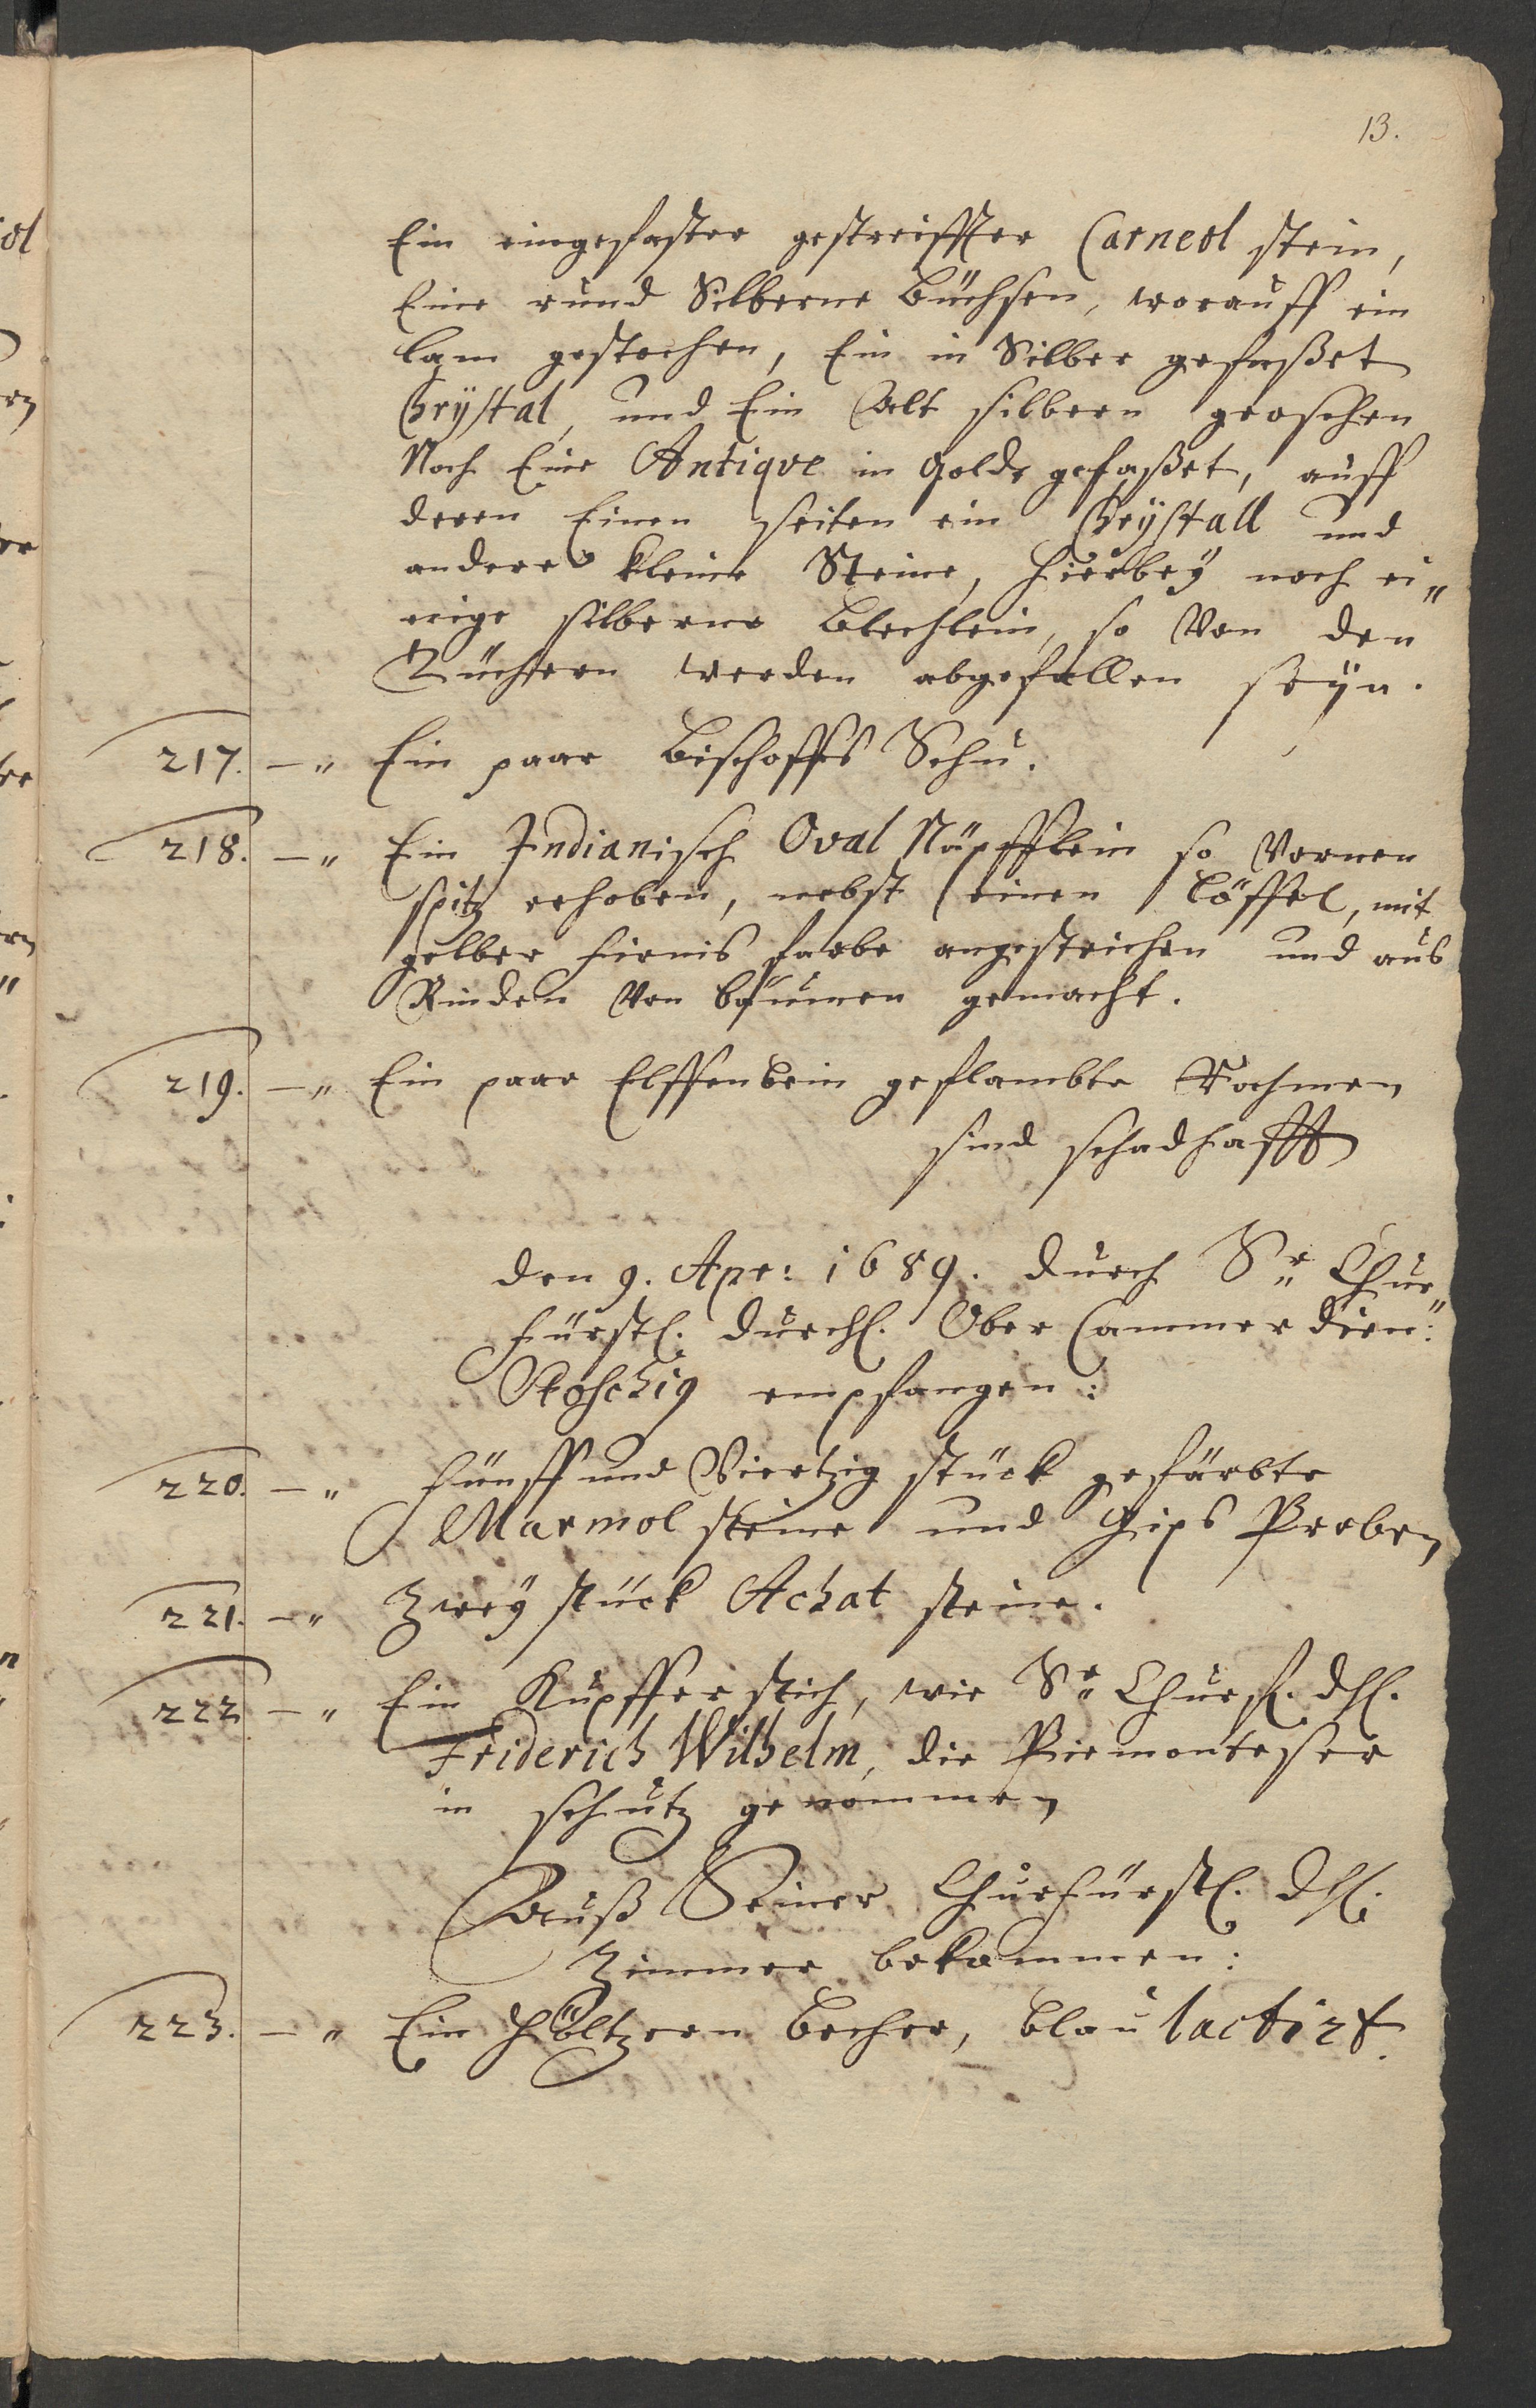 13.
Ein eingefaster gestreiffter Carneol stein,
Eine rund Silberne Büchsen, worauff ein
lam gestochen, Ein in Silber gefaßet
Chrystal, und Ein Alt silbern groschen
Noch Eine Antiqve in Golde gefaßet, auff
deren Einen seiten ein Chrystall und
andere kleine Steine, hierbeÿ noch ei„
nige silberne blechlein, so Von den
Tüchern werden abgefallen seÿn.
217. — „ Ein paar Bischoffs Schu.
218. — „ Ein Indianisch Oval Näpfflein so Vornen
spitz erhoben, nebst einen löffel, mit
gelber firnis farbe angestrichen und aus
Rinden Von bäumen gemacht.
219. — „ Ein paar Elffenbein geflambte Rahmen
sind schadhafft
den 9. Apr: 1689. durch Sr. Chur„
fürstl. durchl. Ober Cammerdien:
Stoschig empfangen:
220. — „ fünff und Viertzig stück gefärbte
Marmol steine und Gips Proben
221. — „ Zweÿ stück Achat steine.
222 — „ Ein Kupfferstich, wie Sr. Churf. dhl.
Friderich Wilhelm, die Piemonteser
in schutz genommen
Auß Seiner Churfürstl. dhl.
Zimmer bekommen:
223. — „ Ein höltzern becher, blau lactirt.